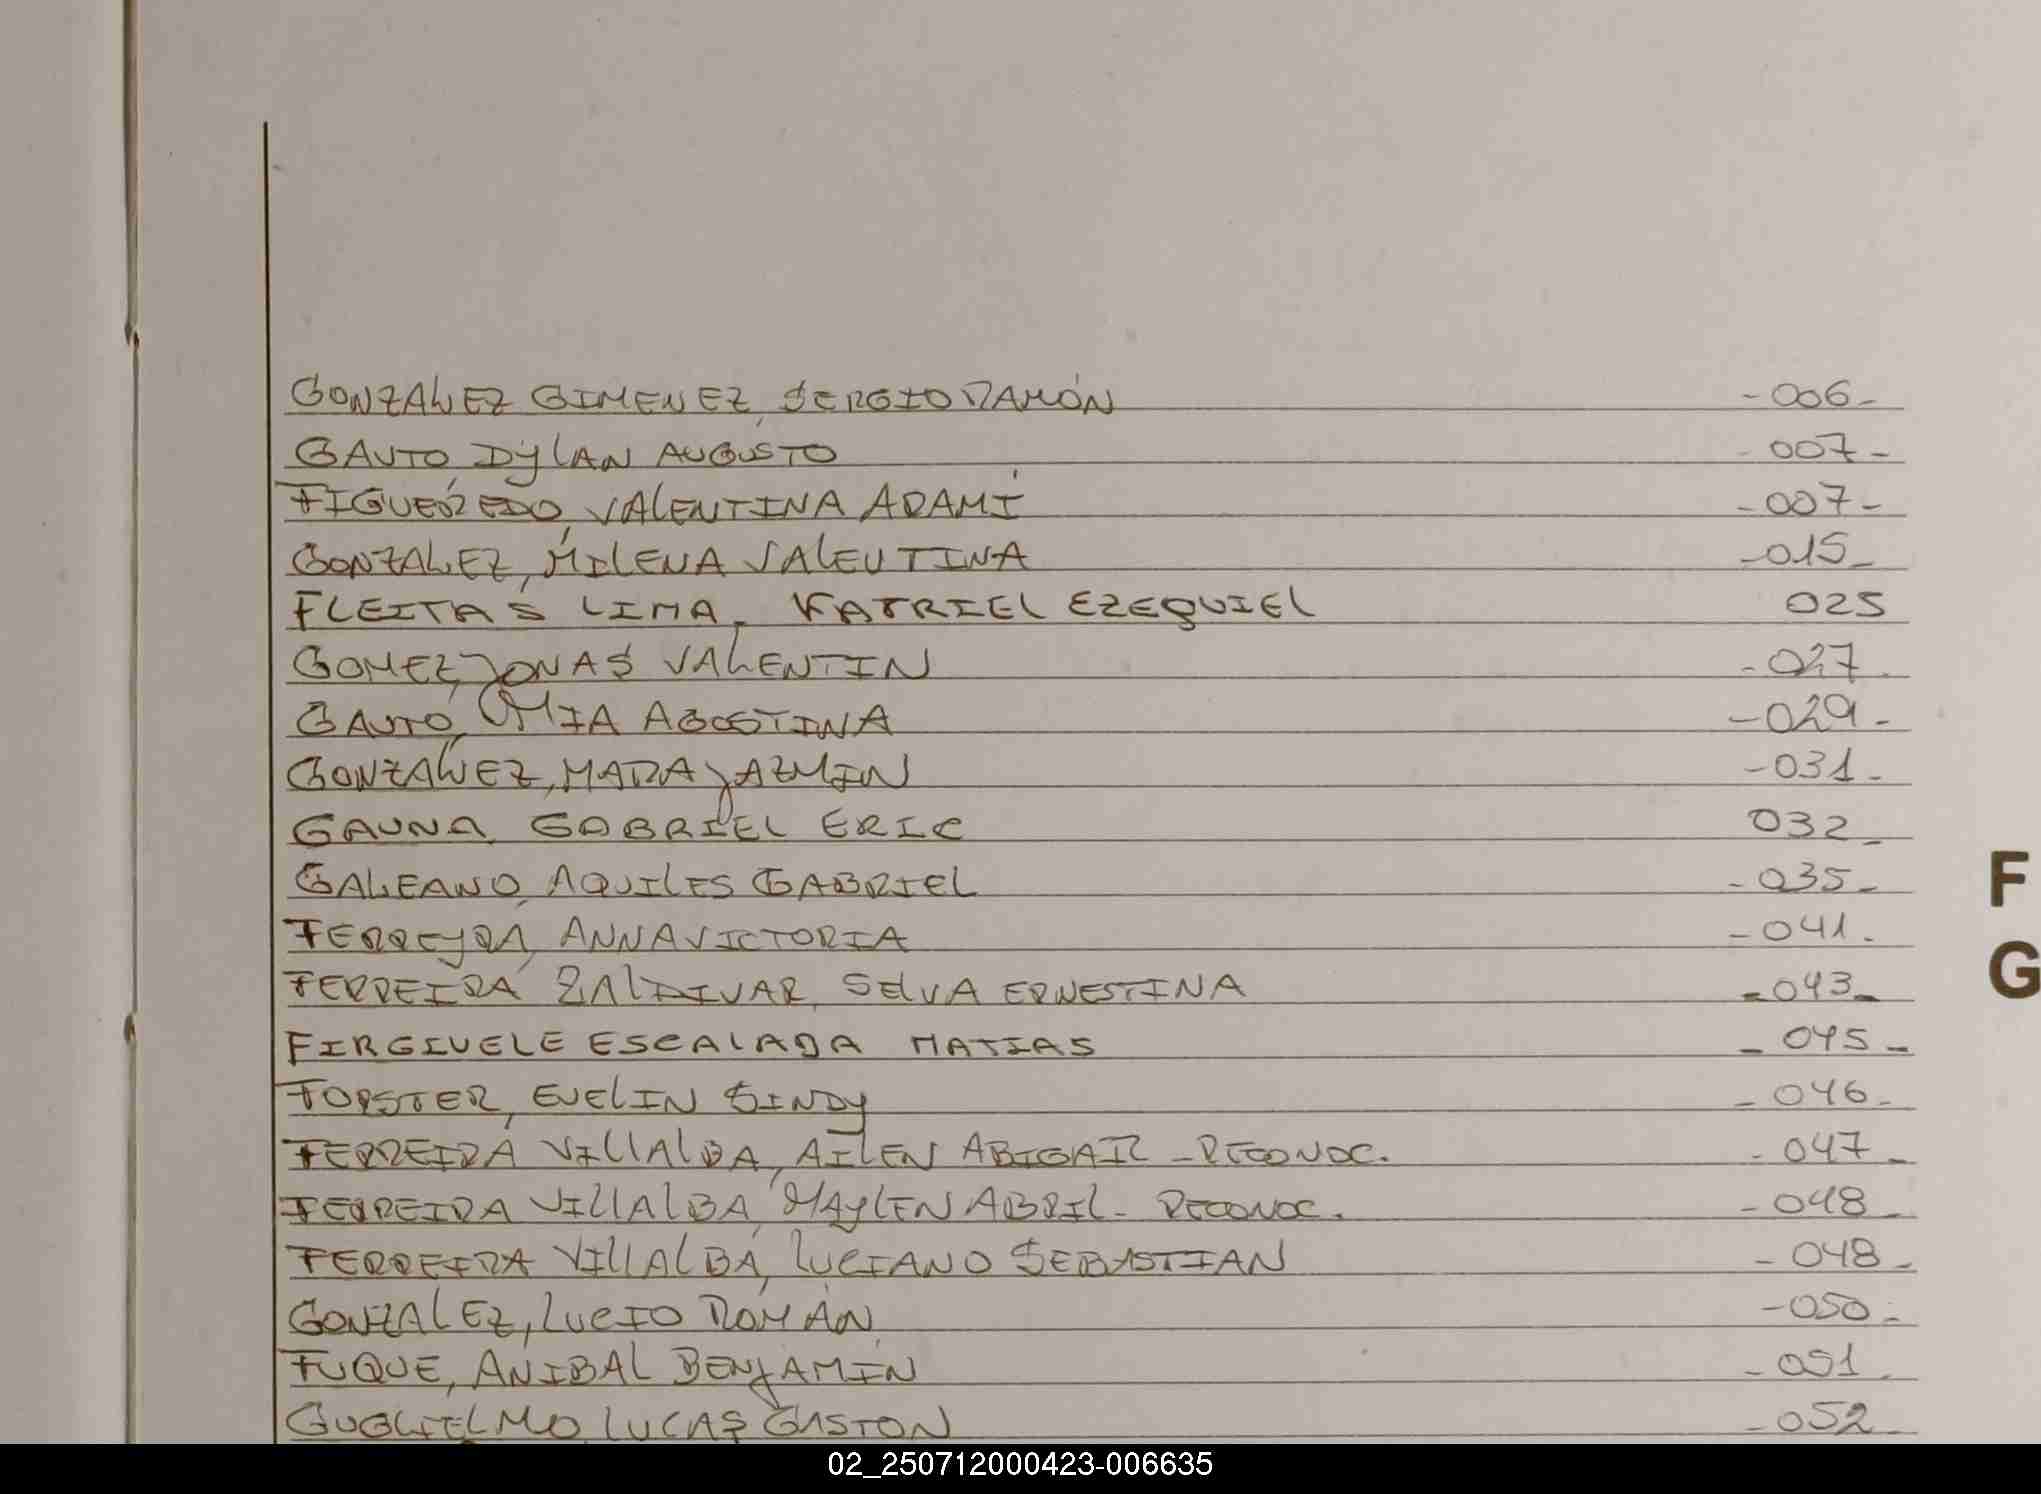 GONZALEZ GIMENEZ, SERGIO RAMÓN -006-
GAUTO, DYLAN AUGUSTO 007-
FIGUEREDO, VALENTINA ARAMÍ -007-
GONZALEZ, MILENA VALENTINA -015-
FLEITAS LIMA, KATRIEL EZEQUIEL 025
GOMEZ, JONAS VALENTIN -027
GAUTO, MIA AGOSTINA -029-
GONZALEZ, MARA JAZMIN -031-
GAUNA, GABRIEL ERIC 032-
GALEANO, AQUILES GABRIEL -035-
FERREYRA, ANNA VICTORIA -041-
FERREIRA ZALDIVAR, SELVA ERNESTINA -043-
F
G
FIRGIVELE ESCALADA MATIAS -045-
FORSTER, EVELIN SINDY -046-
FERREIRA VILLALBA, AILEN ABIGAIL - RECONOC. -047-
FERREIRA VILLALBA, MAYLEN ABRIL - RECONOC. -048-
FERREIRA VILLALBA, LUCIANO SEBASTIAN -048-
GONZALEZ, LUCIO ROMÁN -050-
FUQUE, ANIBAL BENJAMIN -051-
GUGLIELMO, LUCAS GASTON -052-
02_250712000423-006635